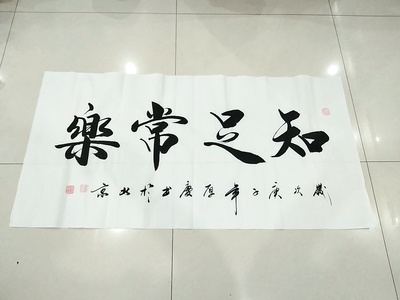 知足常樂
歲次庚子年厚慶书於北京